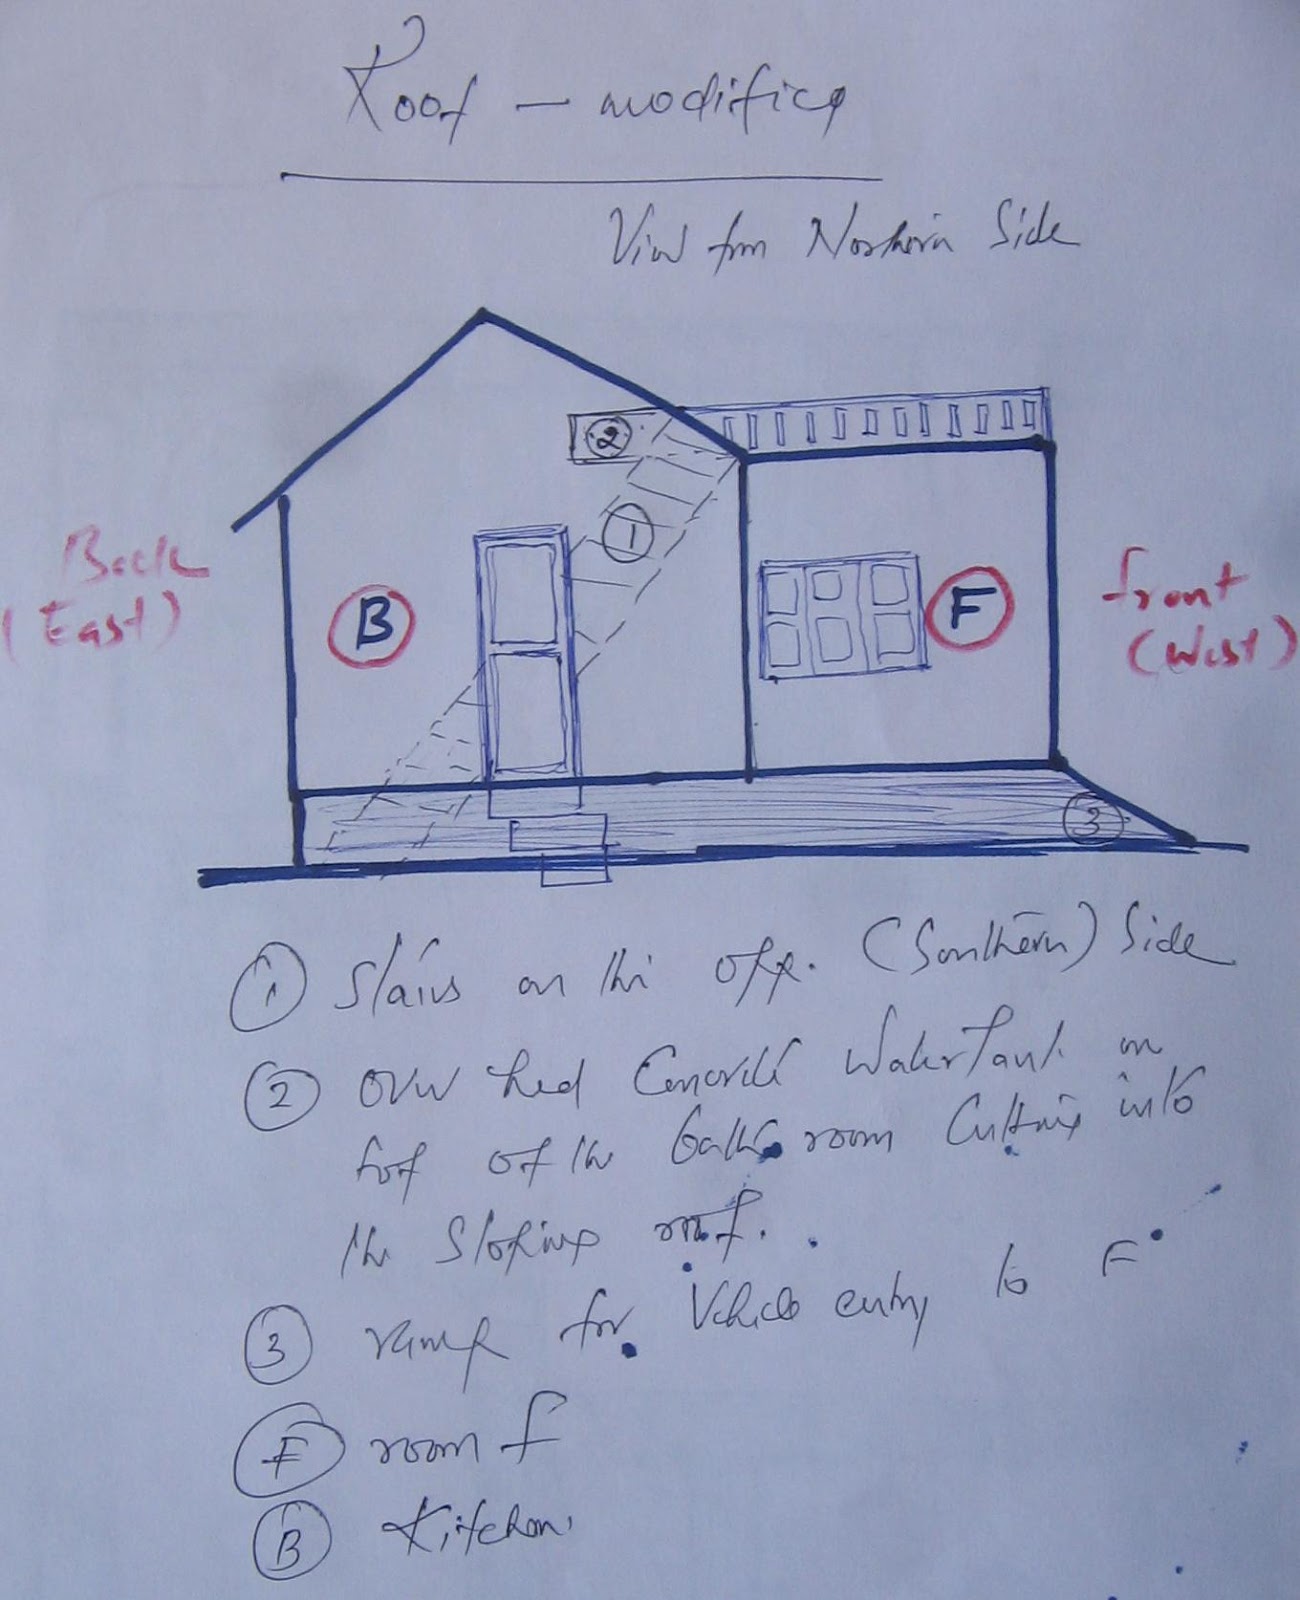 Roof - modifica
View from Northern Side
2
1
Back
(East)
B
F
front
(West)
3
1 Stairs on the opp. (Southern) Side
2 over head Concrete Water Tank on
top of the bath room Cutting into
the Sloping roof.
3 ramp for Vehicle entry to F
F room F
B Kitchen